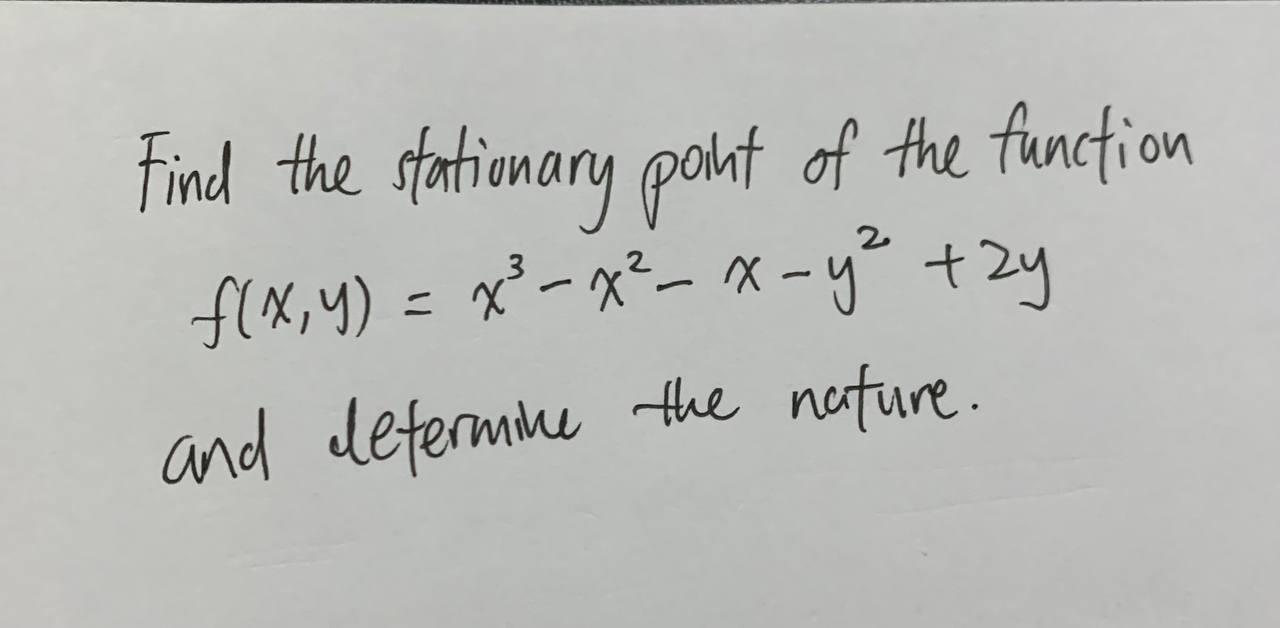 Find the stationary point of the function
f(x,y) = x³ - x² - x - y² + 2y
and determine the nature.